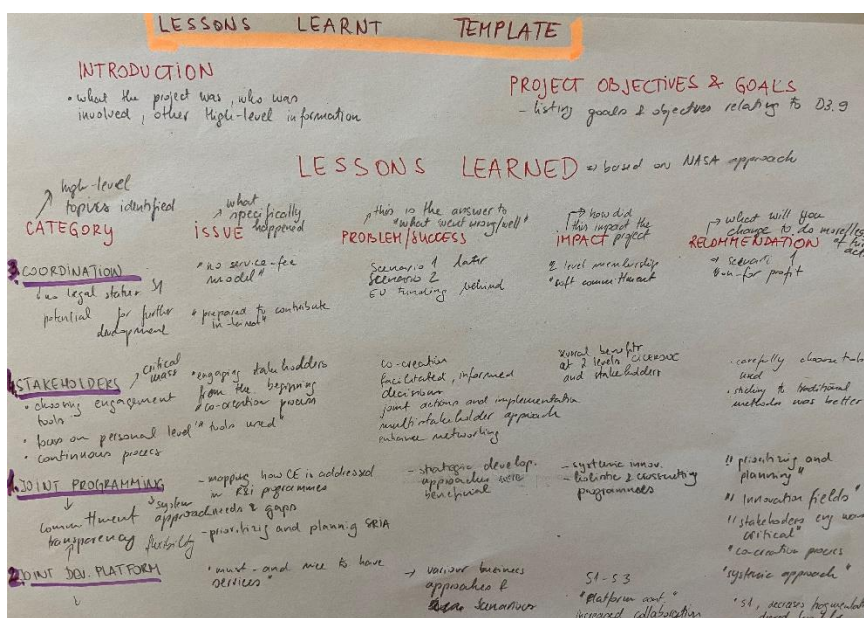 LESSONS LEARNT TEMPLATE
INTRODUCTION
• what the project was, who was
involved, other High-level information
PROJECT OBJECTIVES & GOALS
- listing goals & objectives relating to D3.9
LESSONS LEARNED
based on NASA approach
high-level
topics identified
CATEGORY
what
specifically
happened
ISSUE
this is the answer to
"what went wrong/well"
PROBLEM/SUCCESS
how did
this impact the
project
IMPACT
what will you
change to do more/less
of this
RECOMMENDATION
3. COORDINATION
no legal status S1
potential for further
development
"no service-fee
model"
"prepared to contribute
in-kind"
Scenario 1 later
Scenario 2
EU funding behind
2 level membership
"soft commitment
scenario 1
non-for profit
STAKEHOLDERS
critical
mass
• choosing engagement
tools
• focus on personal level
• continuous process
• engaging stakeholders
from the beginning
"co-creation process
"tools used"
co-creation
facilitated, informed
decisions
joint actions and implementation
multistakeholder approach
enhance networking
mutual benefits
at 2 levels CICERONE
and stakeholders
- carefully choose tools
used
- sticking to traditional
methods was better
1. JOINT PROGRAMMING
commitment
transparency
flexibility
system
approach
- mapping how CE is addressed
in R&I programmes
needs & gaps
- prioritizing and planning SRIA
- strategic develop.
approaches were
beneficial
- systemic innov.
- holistic & crosscutting
programmes
"prioritizing and
planning"
"Innovation fields"
"stakeholders eng was
critical"
"co-creation process
"systemic approach"
2. JOINT DEV. PLATFORM
"must- and nice to have
services"
→ various business
approaches &
scenarios
S1-S3
"Platform
increased collaboration
"S1, decrease fragmentation